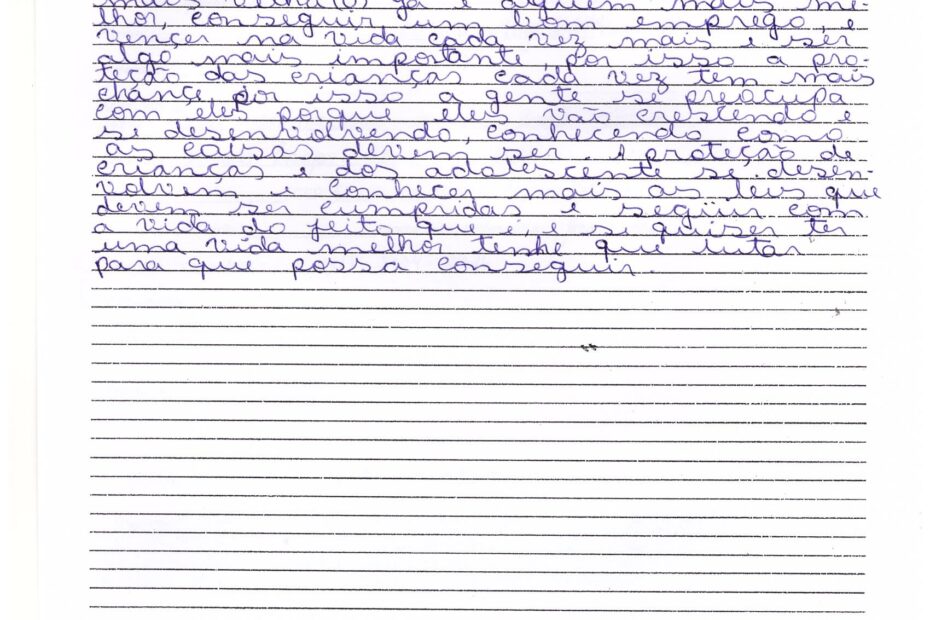 mais velha(o) já é alguém mais me-
lhor, conseguir um bom emprego, e
vençer na vida cada vez mais e ser
algo mais importante, por isso a pro-
teção das crianças cada vez tem mais
chançe por isso a gente se preocupa
com eles porque eles vão crescendo e
se desenvolvendo, conhecendo como
as coisas devem ser. A proteção de
crianças e dos adolescente se desen-
volvem e conheçer mais as leis que
devem ser cumpridas e següir com
a vida do jeito que é, e se quiser ter
uma vida melhor tenhe que lutar
para que possa conseguir.